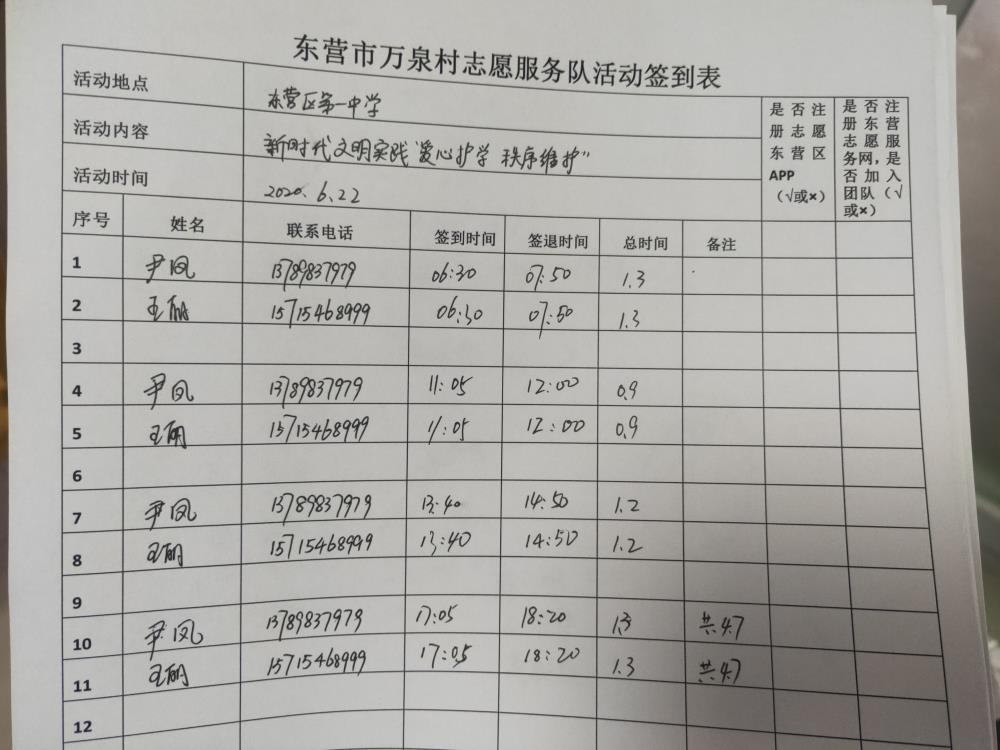 东营市万泉村志愿服务队活动签到表
活动地点 东营区第一中学
活动内容 新时代文明实践"爱心护学 秩序维护"
活动时间 2020.6.22
是否注册志愿东营区APP（√或×）
是否注册东营志愿服务网，是否加入团队（√或×）
序号 姓名 联系电话 签到时间 签退时间 总时间 备注
1 尹凤 13789837979 06:30 07:50 1.3
2 王丽 15715468999 06:30 07:50 1.3
3
4 尹凤 13789837979 11:05 12:00 0.9
5 王丽 15715468999 11:05 12:00 0.9
6
7 尹凤 13789837979 13:40 14:50 1.2
8 王丽 15715468999 13:40 14:50 1.2
9
10 尹凤 13789837979 17:05 18:20 1.3 共4.7
11 王丽 15715468999 17:05 18:20 1.3 共4.7
12